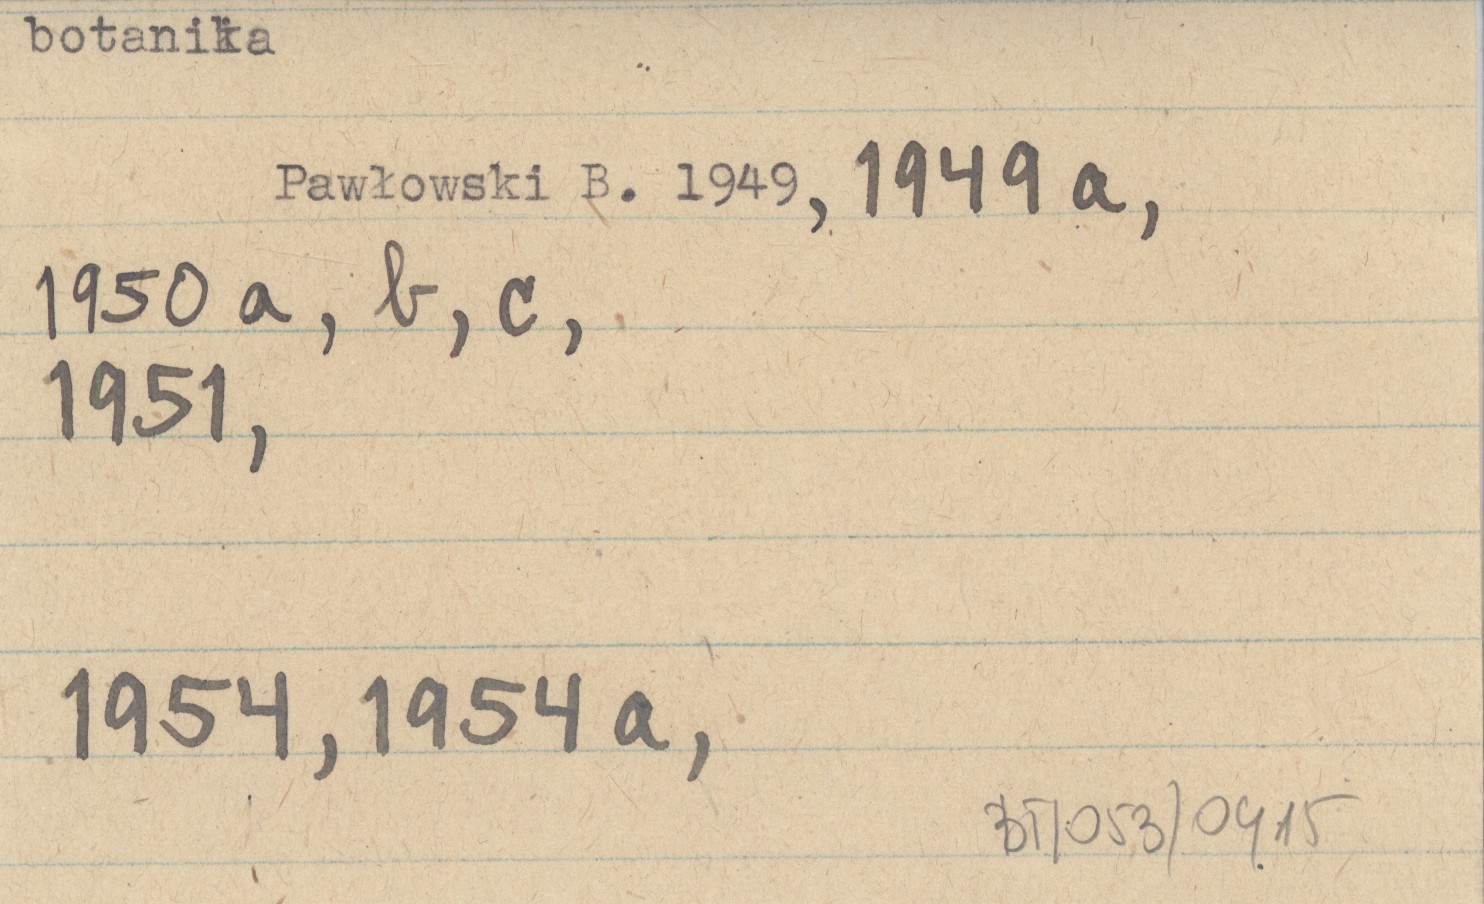 botanika
Pawłowski B. 1949, 1949 a,
1950 a, b, c,
1951,
1954, 1954 a,
BT/053/0415